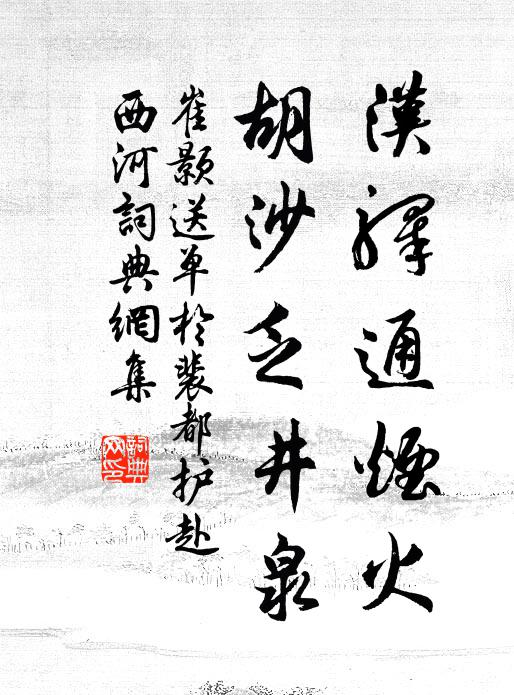 漢驛通煙火
胡沙乏井泉
崔颢送单於裴都护赴
西河詞典網集
詞典網印